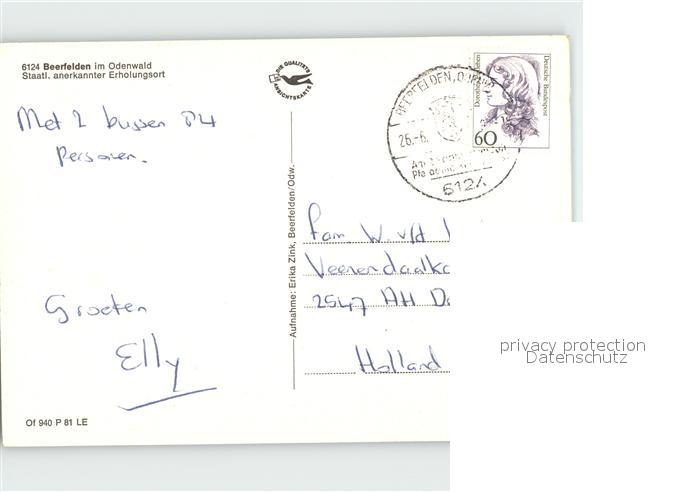 6124 Beerfelden im Odenwald
Staatl. anerkannter Erholungsort
DIE QUALITÄTS
ANSICHTSKARTE
BEERFELDEN, ODENW
26.-6.
6124
60
Deutsche Bundespost
Met 2 bussen 84
Personen.
Groeten
Elly
Aufnahme: Erika Zink, Beerfelden/Odw.
Fam. W. v/d
2547 AH
Holland
privacy protection
Datenschutz
Of 940 P 81 LE